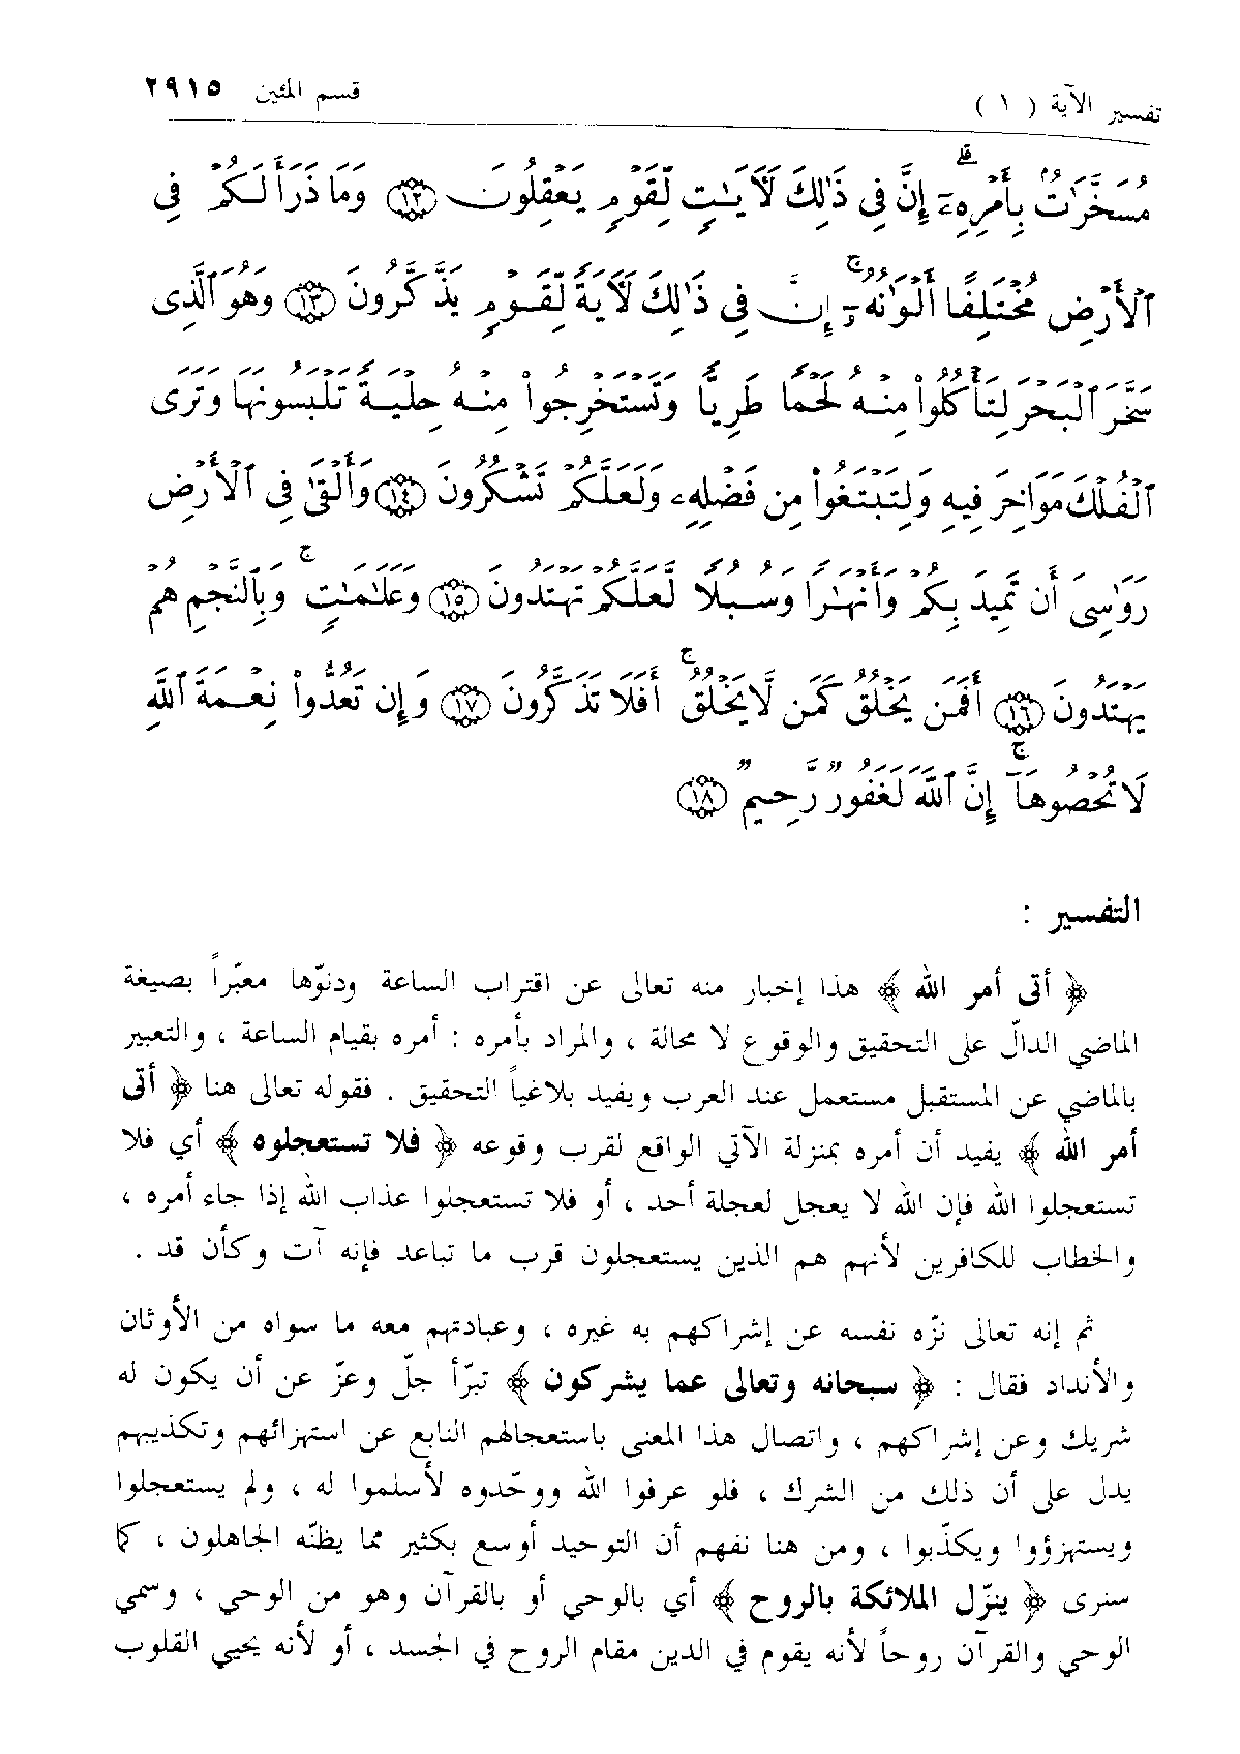 تفسير الآية ( ١ ) قسم المئين ٢٩١٥
مُسَخَّرَٰتٌۢ بِأَمْرِهِۦٓ ۗ إِنَّ فِى ذَٰلِكَ لَأٓيَٰتٍ لِّقَوْمٍ يَعْقِلُونَ ﴿١٢﴾ وَمَا ذَرَأَ لَكُمْ فِى
ٱلْأَرْضِ مُخْتَلِفًا أَلْوَٰنُهُۥٓ ۚ إِنَّ فِى ذَٰلِكَ لَأٓيَةً لِّقَوْمٍ يَذَّكَّرُونَ ﴿١٣﴾ وَهُوَ ٱلَّذِى
سَخَّرَ ٱلْبَحْرَ لِتَأْكُلُوا۟ مِنْهُ لَحْمًا طَرِيًّا وَتَسْتَخْرِجُوا۟ مِنْهُ حِلْيَةً تَلْبَسُونَهَا وَتَرَى
ٱلْفُلْكَ مَوَاخِرَ فِيهِ وَلِتَبْتَغُوا۟ مِن فَضْلِهِۦ وَلَعَلَّكُمْ تَشْكُرُونَ ﴿١٤﴾ وَأَلْقَىٰ فِى ٱلْأَرْضِ
رَوَٰسِىَ أَن تَمِيدَ بِكُمْ وَأَنْهَٰرًا وَسُبُلًا لَّعَلَّكُمْ تَهْتَدُونَ ﴿١٥﴾ وَعَلَٰمَٰتٍ ۚ وَبِٱلنَّجْمِ هُمْ
يَهْتَدُونَ ﴿١٦﴾ أَفَمَن يَخْلُقُ كَمَن لَّا يَخْلُقُ ۚ أَفَلَا تَذَكَّرُونَ ﴿١٧﴾ وَإِن تَعُدُّوا۟ نِعْمَةَ ٱللَّهِ
لَا تُحْصُوهَآ ۚ إِنَّ ٱللَّهَ لَغَفُورٌ رَّحِيمٌ ﴿١٨﴾
التفسير :
﴿ أتى أمر الله ﴾ هذا إخبار منه تعالى عن اقتراب الساعة ودنوّها معبّراً بصيغة
الماضي الدالّ على التحقيق والوقوع لا محالة ، والمراد بأمره : أمره بقيام الساعة ، والتعبير
بالماضي عن المستقبل مستعمل عند العرب ويفيد بلاغياً التحقيق . فقوله تعالى هنا ﴿ أتى
أمر الله ﴾ يفيد أن أمره بمنزلة الآتي الواقع لقرب وقوعه ﴿ فلا تستعجلوه ﴾ أي فلا
تستعجلوا الله فإن الله لا يعجل لعجلة أحد ، أو فلا تستعجلوا عذاب الله إذا جاء أمره ،
والخطاب للكافرين لأنهم هم الذين يستعجلون قرب ما تباعد فإنه آت وكأن قد .
ثم إنه تعالى نزّه نفسه عن إشراكهم به غيره ، وعبادتهم معه ما سواه من الأوثان
والأنداد فقال : ﴿ سبحانه وتعالى عما يشركون ﴾ تبرّأ جلّ وعزّ عن أن يكون له
شريك وعن إشراكهم ، واتصال هذا المعنى باستعجالهم النابع عن استهزائهم وتكذيبهم
يدل على أن ذلك من الشرك ، فلو عرفوا الله ووحّدوه لأسلموا له ، ولم يستعجلوا
ويستهزؤوا ويكذّبوا ، ومن هنا نفهم أن التوحيد أوسع بكثير مما يظنّه الجاهلون ، كما
سنرى ﴿ ينزّل الملائكة بالروح ﴾ أي بالوحي أو بالقرآن وهو من الوحي ، وسمي
الوحي والقرآن روحاً لأنه يقوم في الدين مقام الروح في الجسد ، أو لأنه يحيي القلوب